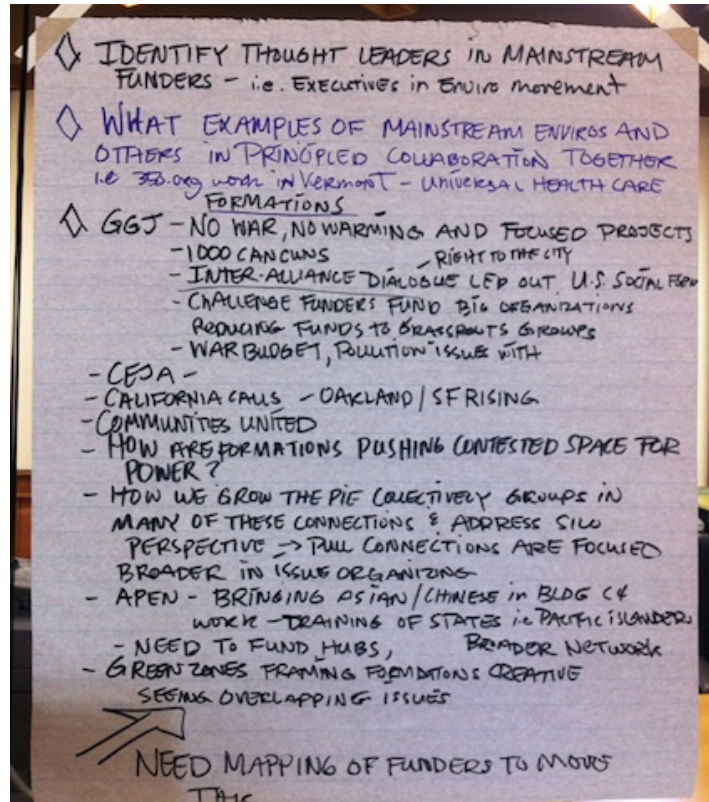 ◇ IDENTIFY THOUGHT LEADERS IN MAINSTREAM
FUNDERS – i.e. EXECUTIVES in Enviro movement
◇ WHAT EXAMPLES OF MAINSTREAM ENVIROS AND
OTHERS IN PRINCIPLED COLLABORATION TOGETHER
i.e 350.org work in Vermont – UNIVERSAL HEALTH CARE
FORMATIONS
◇ GGJ – NO WAR, NO WARMING AND FOCUSED PROJECTS
– 1000 CANCUNS
– RIGHT TO THE CITY
– INTER-ALLIANCE DIALOGUE LED OUT U.S. SOCIAL FORUM
– CHALLENGE FUNDERS FUND BIG ORGANIZATIONS
REDUCING FUNDS TO GRASSROOTS GROUPS
– WAR BUDGET, POLLUTION ISSUE WITH
– CEJA –
– CALIFORNIA CALLS – OAKLAND / SF RISING
– COMMUNITIES UNITED
– HOW ARE FORMATIONS PUSHING CONTESTED SPACE FOR
POWER?
– HOW WE GROW THE PIE COLLECTIVELY GROUPS IN
MANY OF THESE CONNECTIONS & ADDRESS SILO
PERSPECTIVE → PULL CONNECTIONS ARE FOCUSED
BROADER IN ISSUE ORGANIZING
– APEN – BRINGING ASIAN/CHINESE in BLDG C4
WORK – TRAINING OF STATES i.e PACIFIC ISLANDER
– NEED TO FUND HUBS, BROADER NETWORK
– GREEN ZONES FRAMING FORMATIONS CREATIVE
SEEING OVERLAPPING ISSUES
NEED MAPPING OF FUNDERS TO MOVE